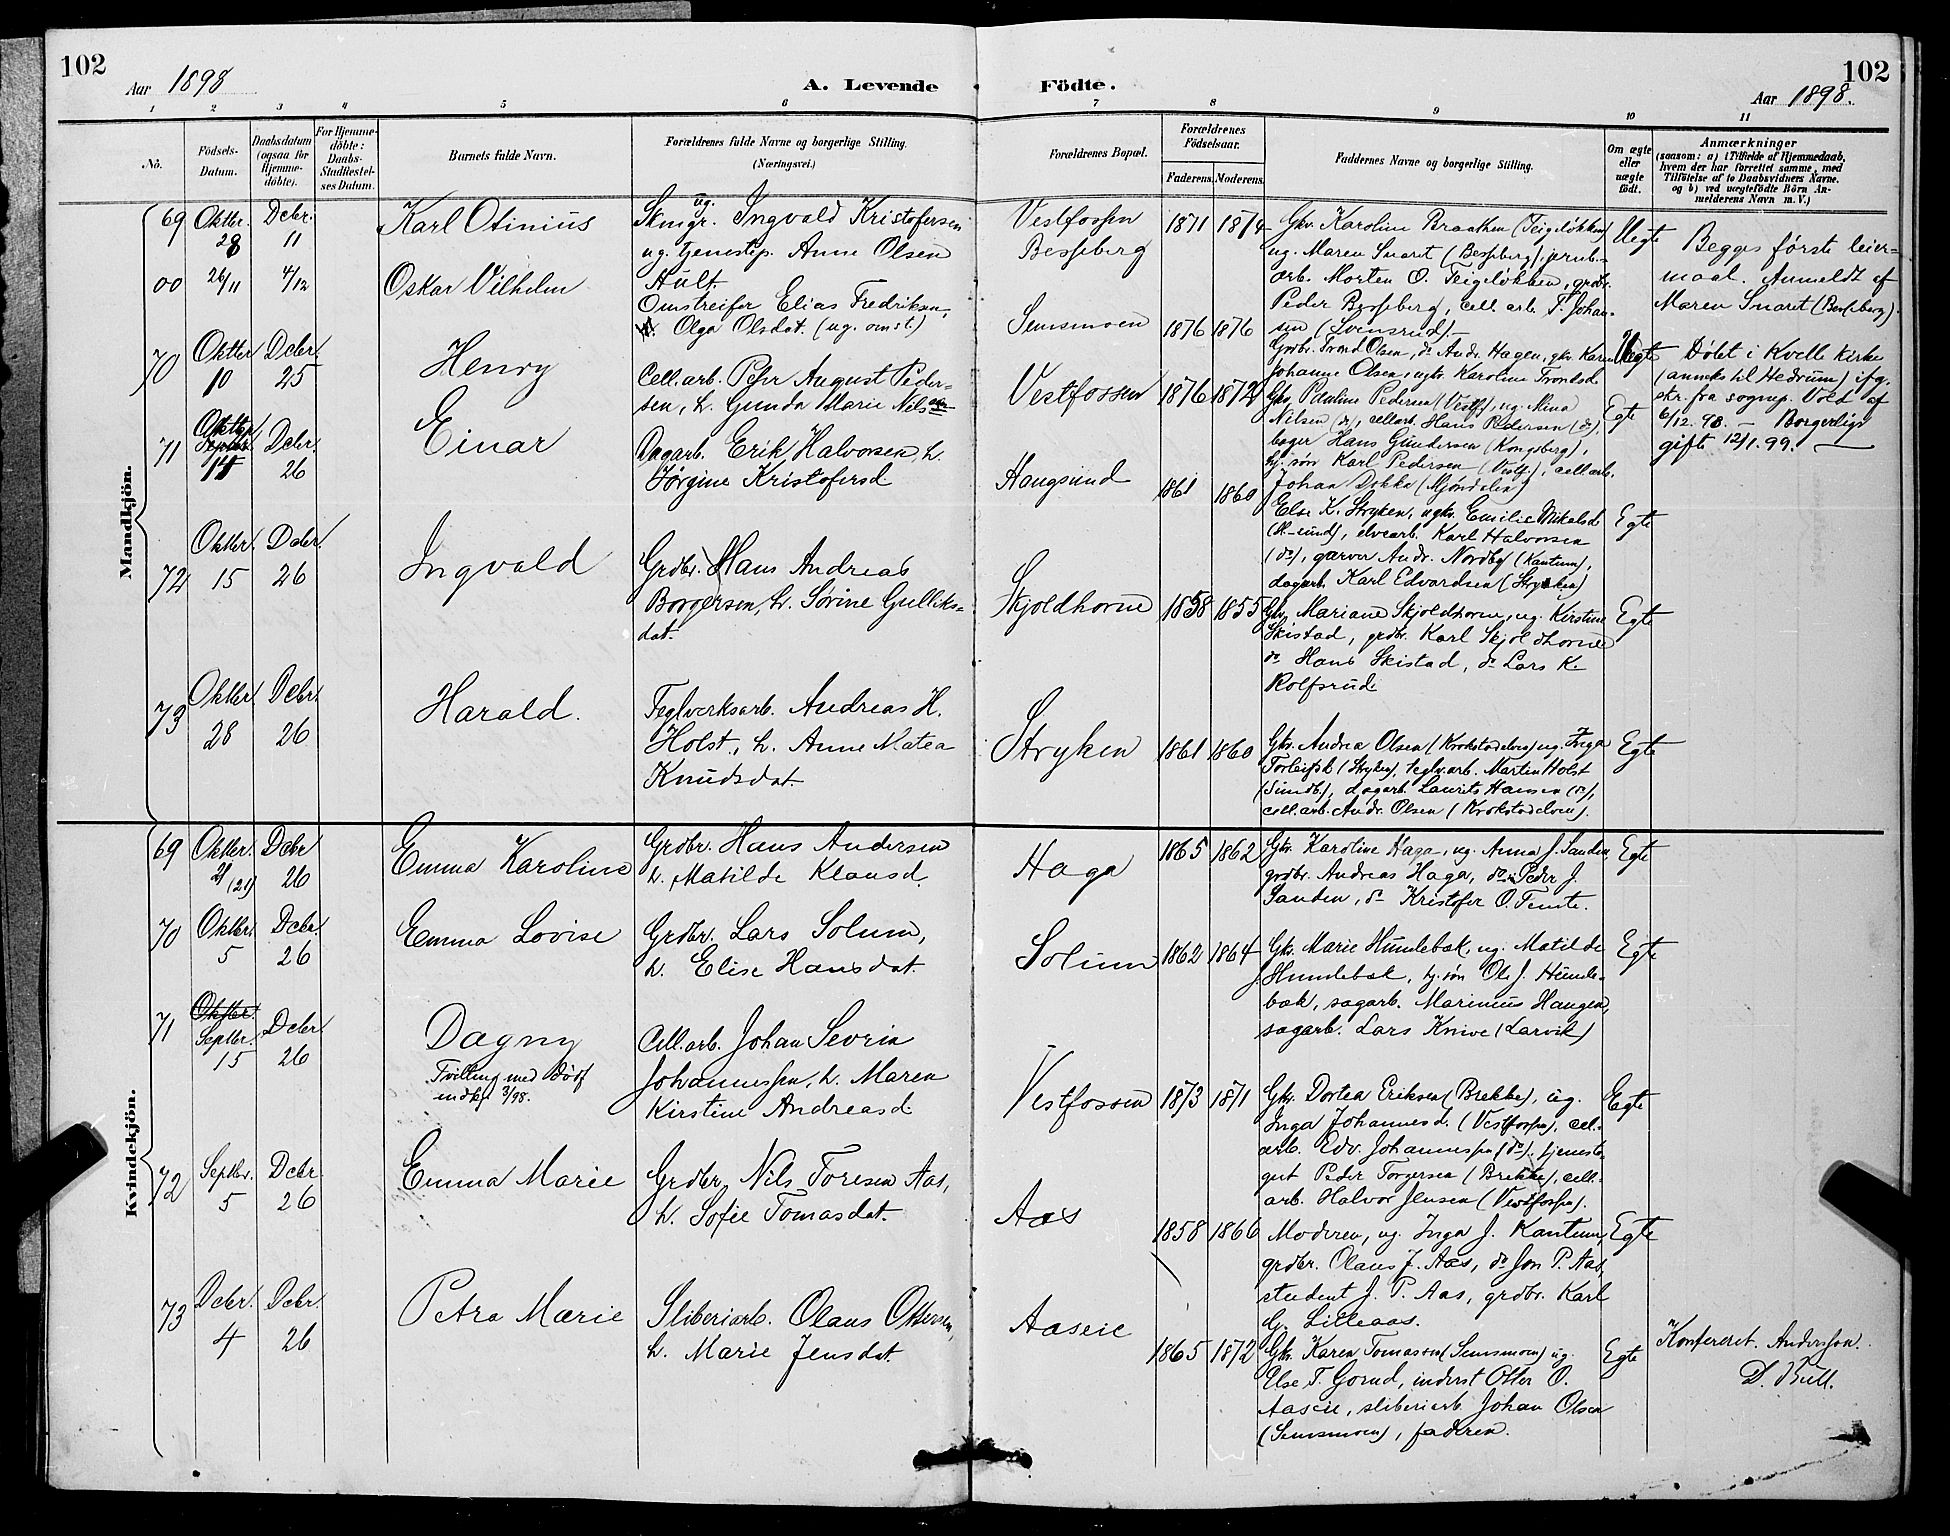 102
Aar 1898
A. Levende
Födte.
102
Aar 1898.
1 2 3 4 5 6 7 8 9 10 11
No.
Födsels-
Datum.
Daabsdatum
(ogsaa for
Hjemme-
döbte).
For Hjemme-
döbte:
Daabs-
Stadfæstel-
ses Datum.
Barnets fulde Navn.
Forældrenes fulde Navne og borgerlige Stilling.
(Næringsvei.)
Forældrenes Bopæl.
Forældrenes
Födselsaar.
Faderens. Moderens.
Faddernes Navne og borgerlige Stilling.
Om ægte
eller
uægte
födt.
Anmærkninger
(saasom: a) i Tilfælde af Hjemmedaab,
hvem der har forrettet samme, med
Tilföielse af to Daabsvidners Navne,
og b) ved uægtefödte Börn An-
melderens Navn m. V.)
Mandkjön.
69
Oktbr.
28
Debr.
11
Karl Otinius
ug.
Skmgr. Ingvald Kristofersen
ug. tjenestep. Anne Olsen
Ault
Vestfossen
Besseberg
1871 1874
Gkv. Karoline Braathen (Teigeløkken)
ug. Maren Snaret (Besseberg), jernb.-
arb. Morten O. Teigeløkken, grdbr.
Peder Besseberg, cell. arb. T. Johan-
sen (Svensrud)
Uegte
Begges første leier-
maal. Anmeldt af
Maren Snaret (Besseberg).
00
26/11
4/12
Oskar Vilhelm
Omstreifer Elias Fredriksen,
Olga Olsdat. (ug. omst.)
Semsmoen
1876 1876
Grdbr. Trond Olsen, do Andr. Hagen, gkv. Karen
Johanne Olsen, ugkv. Karoline Trondsd.
Uegte
Døbt i Kvelle kirke
(anneks til Hedrum) ifg.
skr. fra sognep. Vold af
6/12 98. — Borgerligt
gifte 12/1. 99. —
70
Oktbr.
10
Debr.
25
Henry
Cell. arb. Pehr August Peder-
sen, h. Gunda Marie Nilsen
Vestfossen
1876 1872
Gkv. Pauline Pedersen (Vestf.), ug. Mina
Nilsen (do), cellarb. Hans Pedersen (do),
bager Hans Gundersen (Kongsberg),
hj. søn Karl Pedersen (Vestf.), cell. arb.
Johan Dokka (Mjøndalen)
Egte
71
Oktbr.
Septbr.
14
Debr.
26
Einar
Dagarb. Erik Halvorsen, h.
Jørgine Kristofersd.
Haugsund
1861 1860
Else K. Stryken, ugkv. Emilie Mikelsd
(H-sund), elvearb. Karl Halvorsen
(do), garver Andr. Nordby (Kantum),
dagarb. Karl Edvardsen (Stryken)
Egte
72
Oktbr.
15
Debr.
26
Ingvald
Grdbr. Hans Andreas
Borgersen, h. Sørine Gulliks-
dat.
Skjoldhorne
1858 1855
Gkv. Mariane Skjoldhorne, ug. Kirstine
Skistad, grdbr. Karl Skjoldhorne
do Hans Skistad, do Lars K.
Rolfsrud
Egte
73
Oktbr.
28
Debr.
26
Harald.
Teglverksarb. Andreas H.
Holst, h. Anne Matea
Knudsdat.
Stryken
1861 1860
Gkv. Andrea Olsen (Krokstadelven) ug. Inga
Torleifsd. (Stryken), teglv.arb. Martin Holst
(Sundb.), dagarb. Laurits Hansen (do),
cell. arb. Andr. Olsen (Krokstadelven).
Egte
Kvindekjön.
69
Oktbr.
21 (21)
Debr
26
Emma Karoline
Grdbr. Hans Andersen
h. Matilde Klausd.
Haga
1865 1862
Gkv. Karoline Haga, ug. Anna J. Sanden,
grdbr. Andreas Haga, do Peder J.
Sanden, do Kristofer O. Temte.
Egte
70
Oktbr.
5
Debr.
26
Emma Lovise
Grdbr. Lars Solum,
h. Elise Hansdat.
Solum
1862 1864
Gkv. Marie Humlebæk, ug. Matilde
J. Humlebæk, hj. søn Ole J. Humle-
bæk, sagarb. Marinius Haugen,
sagarb. Lars Knive (Larvik)
Egte
71
Oktbr.
Septbr.
15
Debr
26
Dagny
Tvilling med dødf
indkf 3/98.
Cell. arb. Johan Sevrin
Johannessen, h. Maren
Kirstine Andreasd
Vestfossen
1873 1871
Gkv. Dortea Eriksen (Brekke), ug.
Inga Johannesd. (Vestfossen), cell.-
arb. Edv. Johannessen (do), tjeneste-
gut Peder Torgersen (Brekke), cell.-
arb. Halvor Jensen (Vestfossen).
Egte
72
Septbr.
5
Debr.
26
Emma Marie
Grdbr. Nils Toresen Aas,
h. Sofie Tomasdat.
Aas
1858 1866
Moderen, ug. Inga J. Kantum,
grdbr. Olaus J. Aas, do Jon P. Aas,
student J. P. Aas, grdbr. Karl
G. Lilleaas.
Egte
73
Debr.
4
Debr.
26
Petra Marie
Sliberiarb. Olaus Ottersen,
h. Marie Jensdat.
Aaseie
1865 1872
Gkv. Karen Tomasson (Semsmoen) ug.
Else T. Gorud, inderst Otter O.
Aaseie, sliberiarb. Johan Olsen
(Semsmoen), faderen.
Egte
Konfereret. Anderssen.
D. Bull.